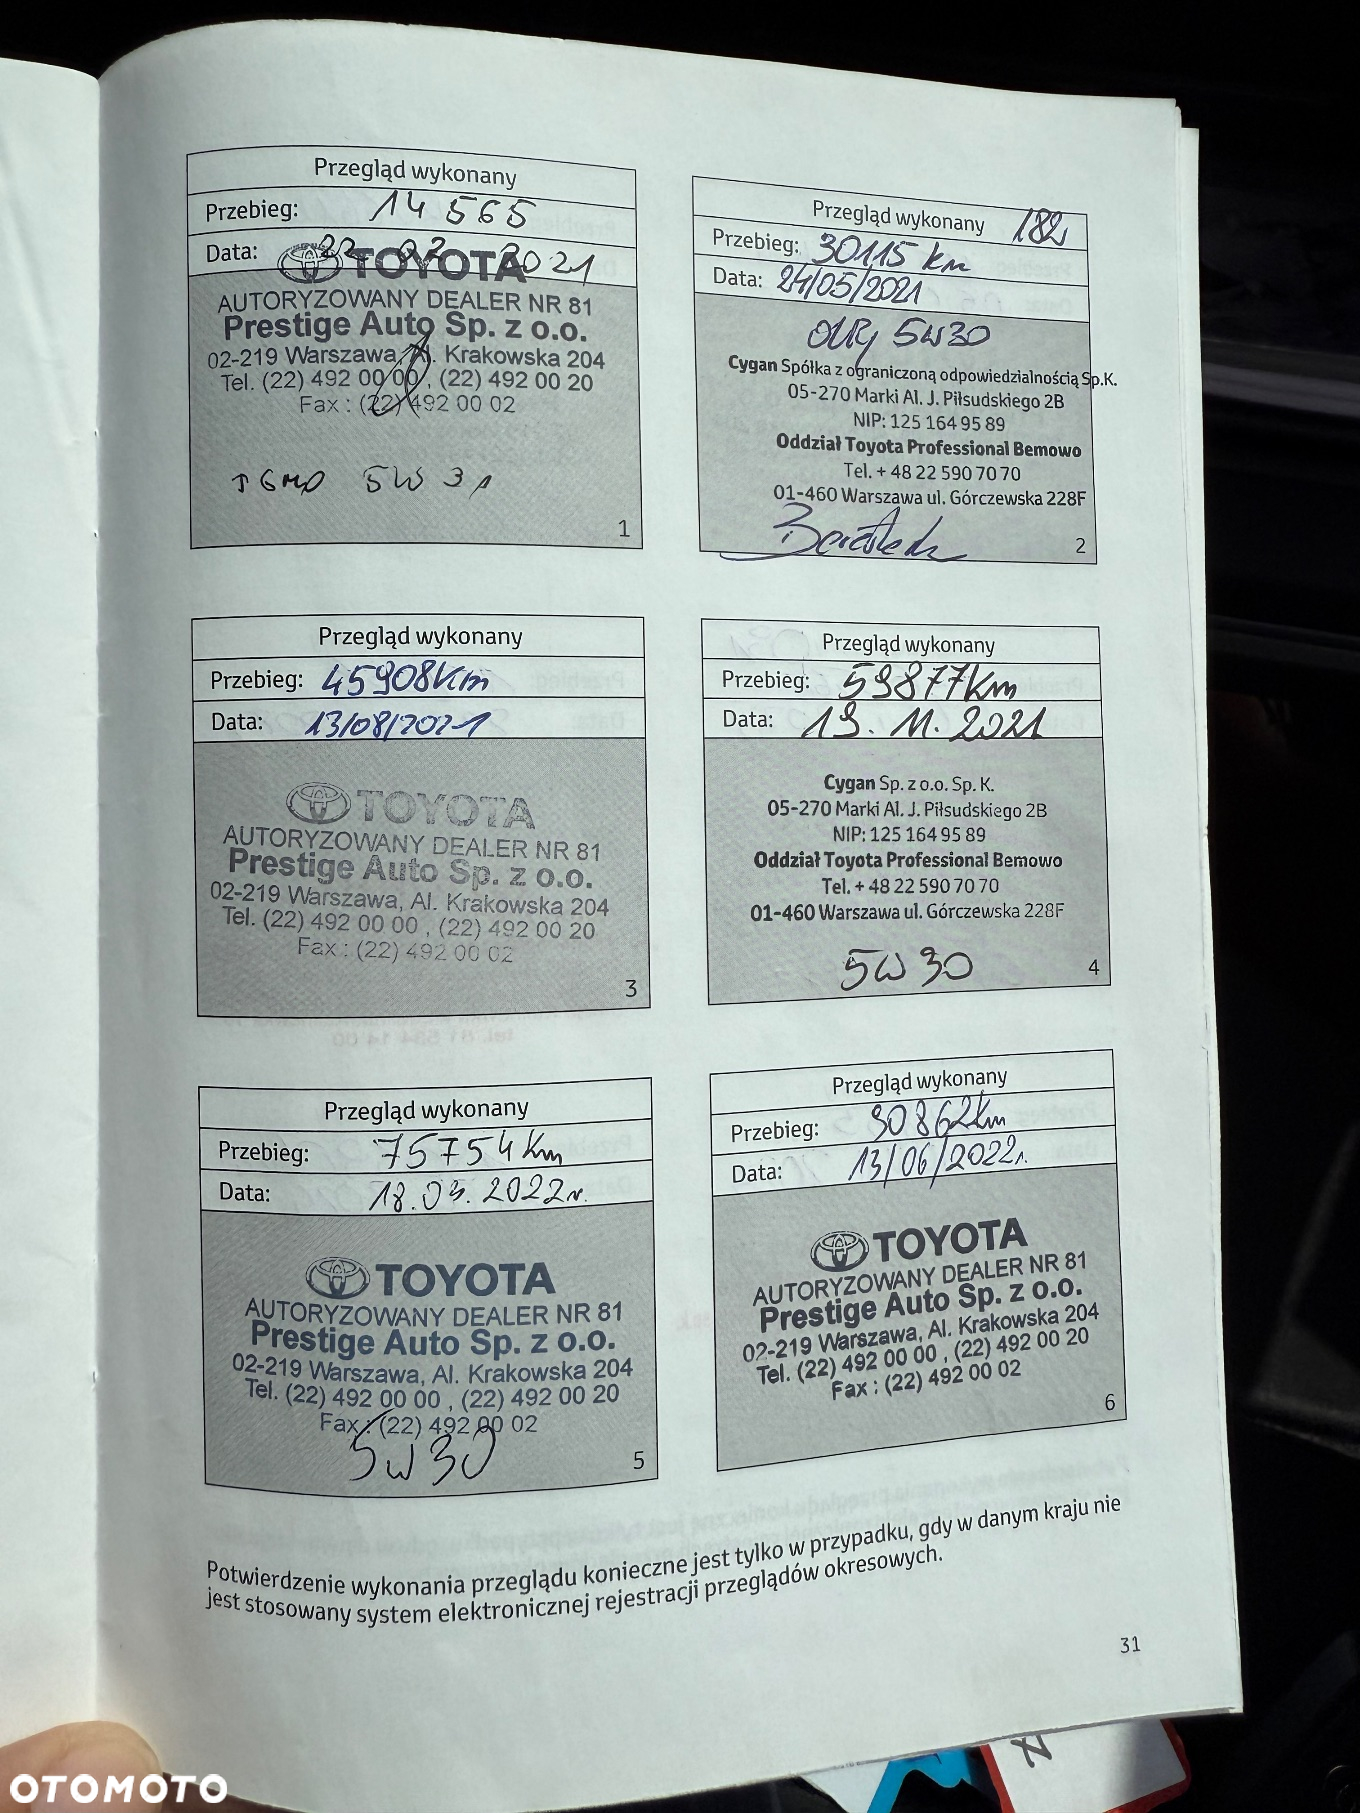 Przegląd wykonany
Przebieg: 14 565
Data: 22 02 2021
TOYOTA
AUTORYZOWANY DEALER NR 81
Prestige Auto Sp. z o.o.
02-219 Warszawa, Al. Krakowska 204
Tel. (22) 492 00 00 , (22) 492 00 20
Fax : (22) 492 00 02
5W 30
1
Przegląd wykonany 182
Przebieg: 30115 km
Data: 24/05/2021
5W30
Cygan Spółka z ograniczoną odpowiedzialnością Sp.K.
05-270 Marki Al. J. Piłsudskiego 2B
NIP: 125 164 95 89
Oddział Toyota Professional Bemowo
Tel. + 48 22 590 70 70
01-460 Warszawa ul. Górczewska 228F
2
Przegląd wykonany
Przebieg: 45908km
Data: 13/08/2021
TOYOTA
AUTORYZOWANY DEALER NR 81
Prestige Auto Sp. z o.o.
02-219 Warszawa, Al. Krakowska 204
Tel. (22) 492 00 00 , (22) 492 00 20
Fax : (22) 492 00 02
3
Przegląd wykonany
Przebieg: 59877km
Data: 19. 11. 2021
Cygan Sp. z o.o. Sp. K.
05-270 Marki Al. J. Piłsudskiego 2B
NIP: 125 164 95 89
Oddział Toyota Professional Bemowo
Tel. + 48 22 590 70 70
01-460 Warszawa ul. Górczewska 228F
5W 30
4
Przegląd wykonany
Przebieg: 75754km
Data: 18.03.2022r.
TOYOTA
AUTORYZOWANY DEALER NR 81
Prestige Auto Sp. z o.o.
02-219 Warszawa, Al. Krakowska 204
Tel. (22) 492 00 00 , (22) 492 00 20
Fax : (22) 492 00 02
5W30
5
Przegląd wykonany
Przebieg: 90862km
Data: 13/06/2022r.
TOYOTA
AUTORYZOWANY DEALER NR 81
Prestige Auto Sp. z o.o.
02-219 Warszawa, Al. Krakowska 204
Tel. (22) 492 00 00 , (22) 492 00 20
Fax : (22) 492 00 02
6
Potwierdzenie wykonania przeglądu konieczne jest tylko w przypadku, gdy w danym kraju nie
jest stosowany system elektronicznej rejestracji przeglądów okresowych.
31
OTOMOTO